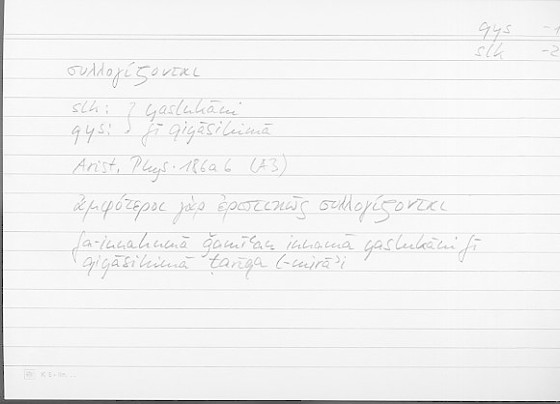 qys -1
slk -2
συλλογίζονται
slk: } yaslukāni
qys: } fī qiyāsihimā
Arist. Phys. 186a6 (A3)
ἀμφότεροι γὰρ ἐριστικῶς συλλογίζονται
fa-innahumā ǧamīʿan innamā yaslukāni fī
qiyāsihimā ṭarīqa l-mirāʾi